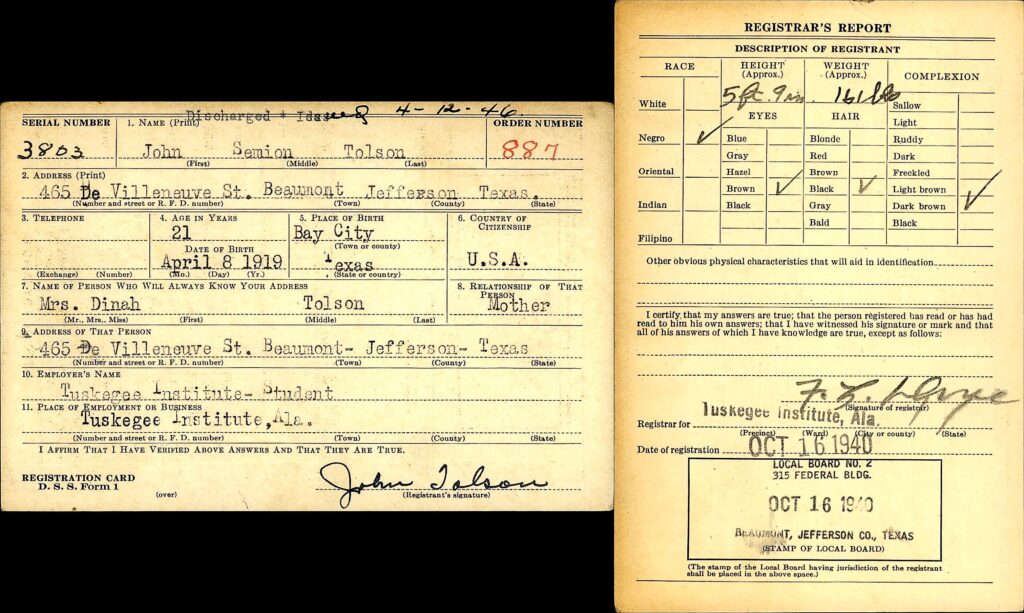 Discharged + Issued 4-12-46
SERIAL NUMBER 1. NAME (Print) ORDER NUMBER
3803 John Semion Tolson 887
(First) (Middle) (Last)
2. ADDRESS (Print)
465 De Villeneuve St. Beaumont Jefferson Texas.
(Number and street or R. F. D. number) (Town) (County) (State)
3. TELEPHONE 4. AGE IN YEARS 5. PLACE OF BIRTH 6. COUNTRY OF
CITIZENSHIP
21 Bay City
DATE OF BIRTH (Town or county)
April 8 1919 Texas U.S.A.
(Exchange) (Number) (Mo.) (Day) (Yr.) (State or country)
7. NAME OF PERSON WHO WILL ALWAYS KNOW YOUR ADDRESS 8. RELATIONSHIP OF THAT
PERSON
Mrs. Dinah Tolson Mother
(Mr., Mrs., Miss) (First) (Middle) (Last)
9. ADDRESS OF THAT PERSON
465 De Villeneuve St. Beaumont- Jefferson- Texas
(Number and street or R. F. D. number) (Town) (County) (State)
10. EMPLOYER'S NAME
Tuskegee Institute- Student
11. PLACE OF EMPLOYMENT OR BUSINESS
Tuskegee Institute,Ala.
(Number and street or R. F. D. number) (Town) (County) (State)
I AFFIRM THAT I HAVE VERIFIED ABOVE ANSWERS AND THAT THEY ARE TRUE.
REGISTRATION CARD
D. S. S. Form 1 John Tolson
(over) (Registrant's signature)
REGISTRAR'S REPORT
DESCRIPTION OF REGISTRANT
RACE HEIGHT WEIGHT COMPLEXION
(Approx.) (Approx.)
White 5 ft. 9 in. 161 lbs Sallow
EYES HAIR Light
Negro ✓ Blue Blonde Ruddy
Gray Red Dark
Oriental Hazel Brown Freckled
Brown ✓ Black ✓ Light brown
Indian Black Gray Dark brown ✓
Bald Black
Filipino
Other obvious physical characteristics that will aid in identification
I certify that my answers are true; that the person registered has read or has had
read to him his own answers; that I have witnessed his signature or mark and that
all of his answers of which I have knowledge are true, except as follows:
F. L.
(Signature of registrar)
Registrar for Tuskegee Institute, Ala.
(Precinct) (Ward) (City or county) (State)
Date of registration OCT 16 1940
LOCAL BOARD NO. 2
315 FEDERAL BLDG.
OCT 16 1940
BEAUMONT, JEFFERSON CO., TEXAS
(STAMP OF LOCAL BOARD)
(The stamp of the Local Board having jurisdiction of the registrant
shall be placed in the above space.)